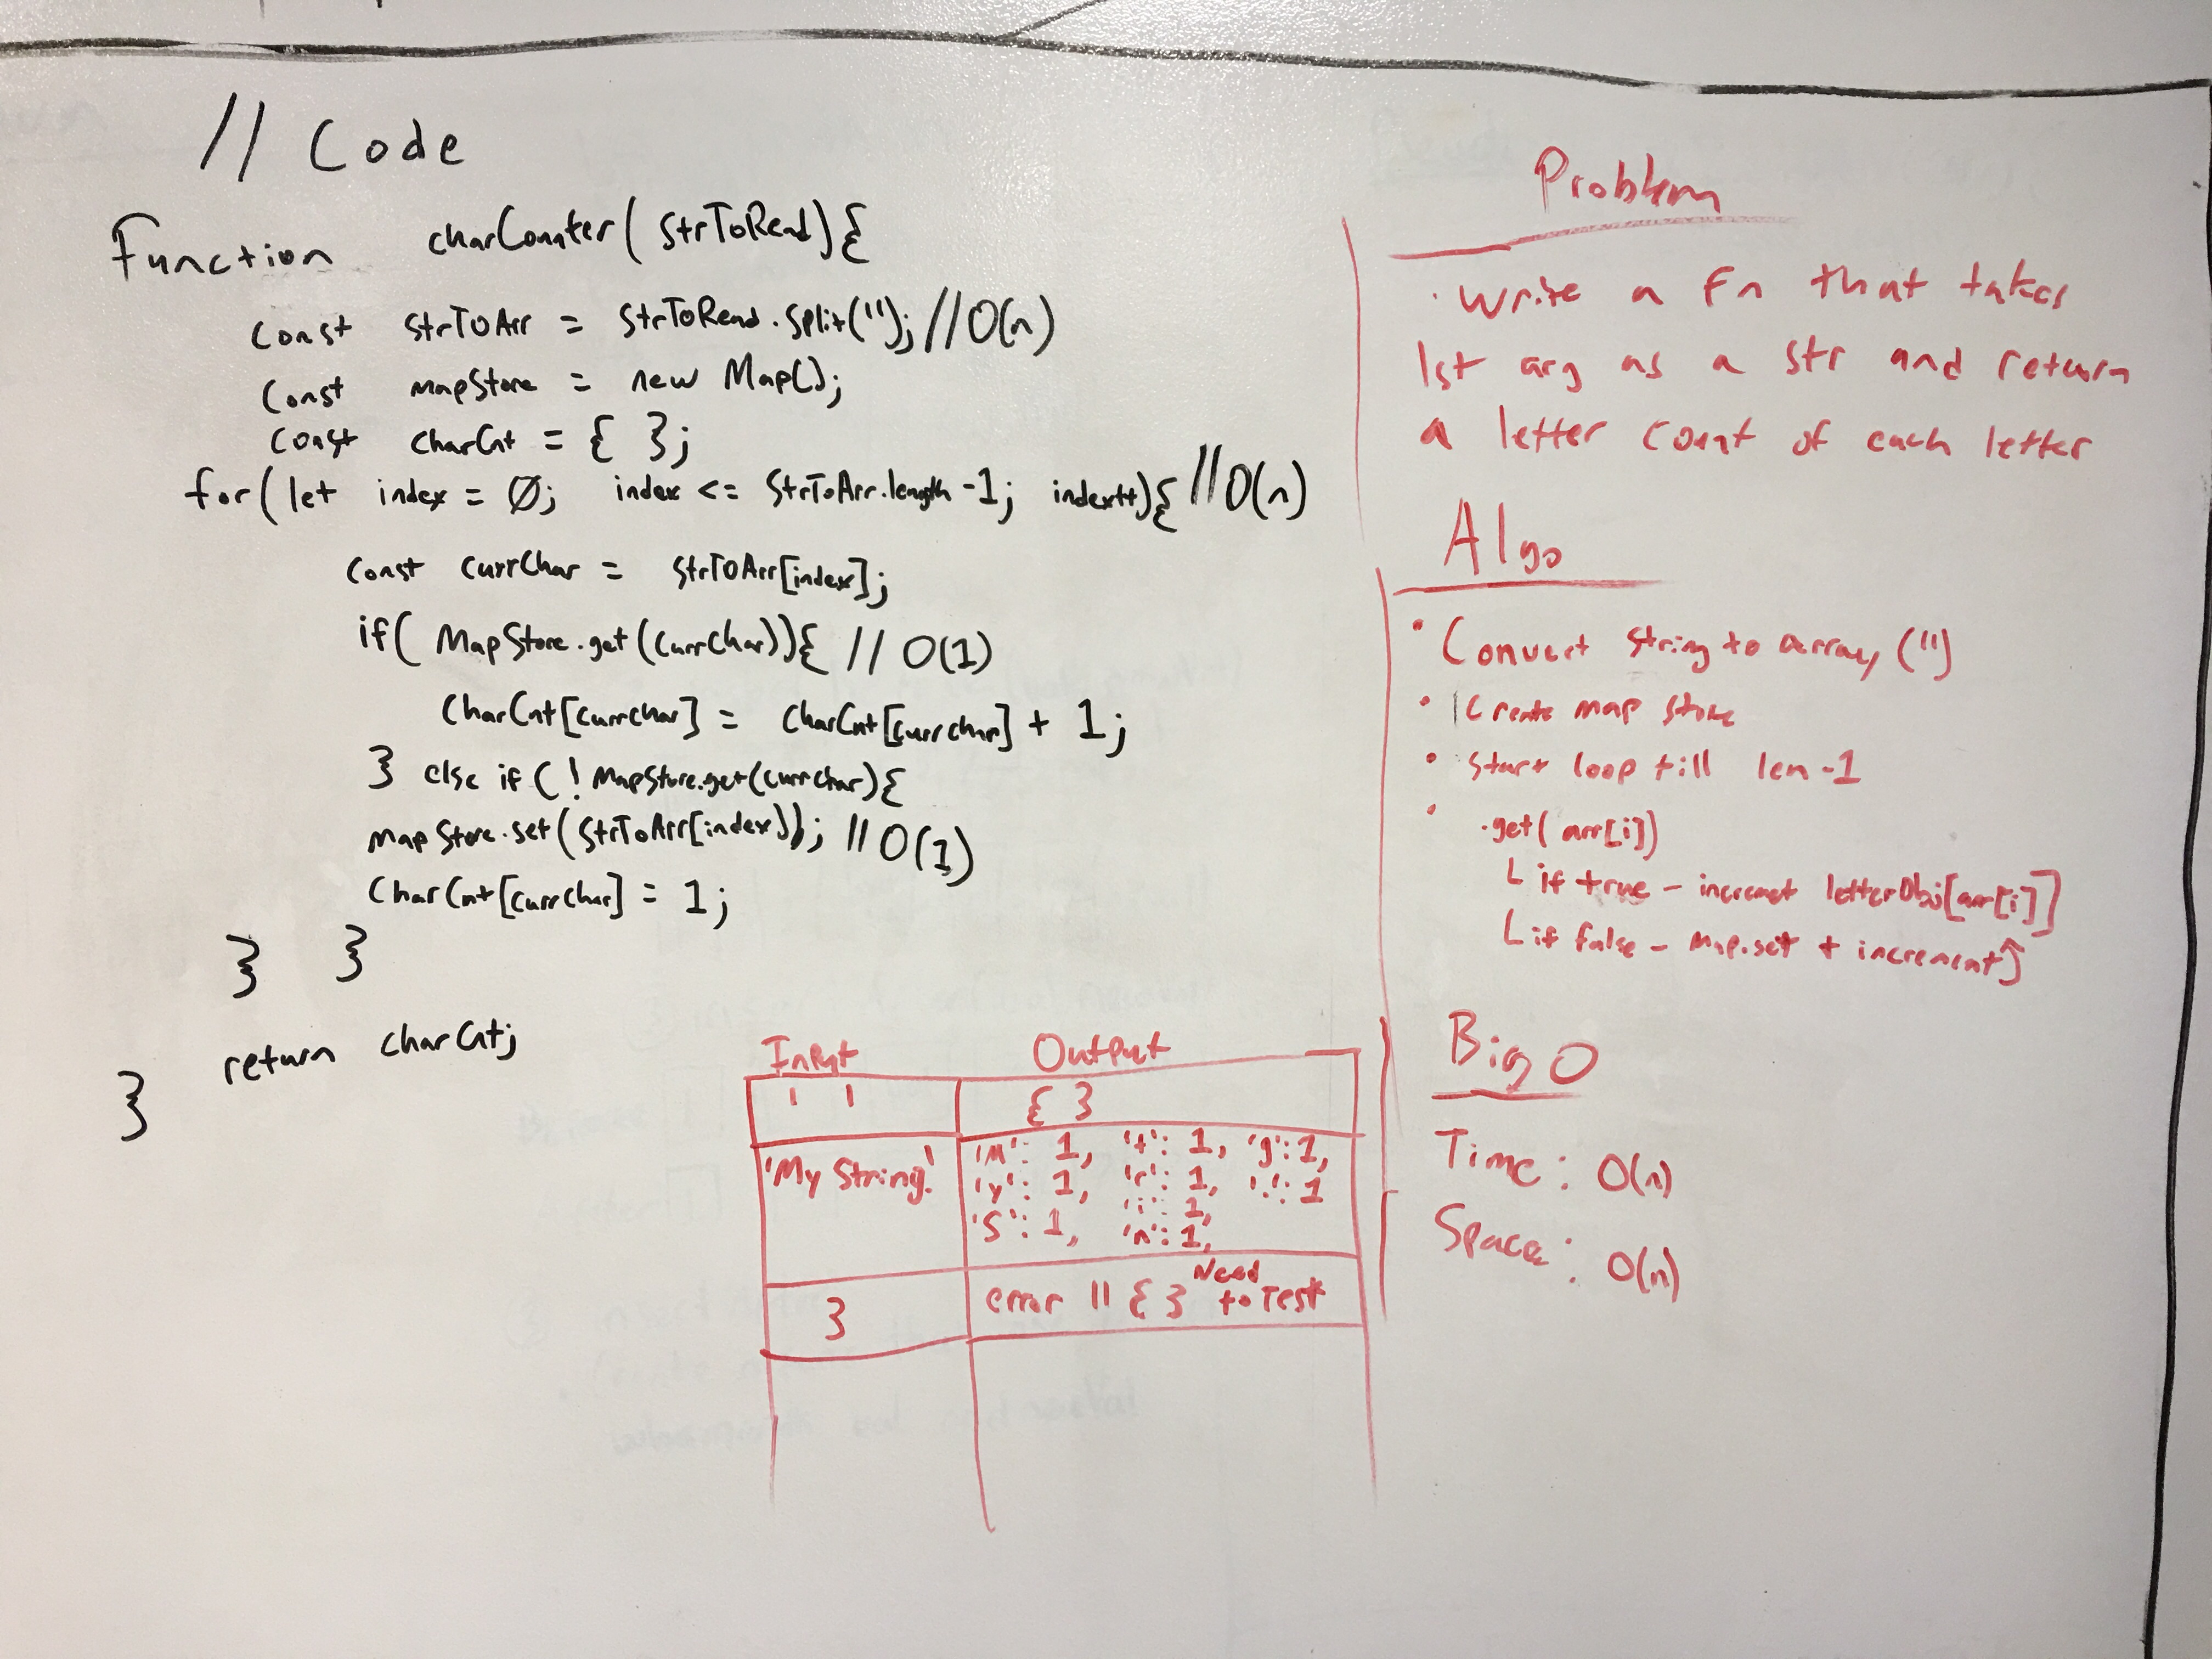 // Code
Function charCounter( StrToRead){
Const strToArr = StrToRead.split(''); //O(n)
Const mapStore = new Map();
Const charCnt = { };
for( let index = 0; index <= StrToArr.length -1; index++){ //O(n)
Const currChar = StrToArr[index];
if( MapStore.get(currChar)){ // O(1)
CharCnt[currChar] = CharCnt[currChar] + 1;
} else if ( ! MapStore.get(currchar){
map Store.set(StrToArr[index]); // O(1)
CharCnt[currChar] = 1;
} }
return charCnt;
}
Problem
· Write a Fn that takes
1st arg as a str and return
a letter count of each letter
Algo
· Convert string to array ('')
· Create map store
· Start loop till len -1
· .get( arr[i])
L if true - incremet letterObj[arr[i]]
L if false - Map.set + increment
Big O
Time: O(n)
Space: O(n)
Input Output
' ' { }
'My String.' 'M': 1, 't': 1, 'g': 1,
'y': 1, 'r': 1, '.': 1
'S': 1, 'i': 1,
'n': 1,
3 error || { } Need to Test